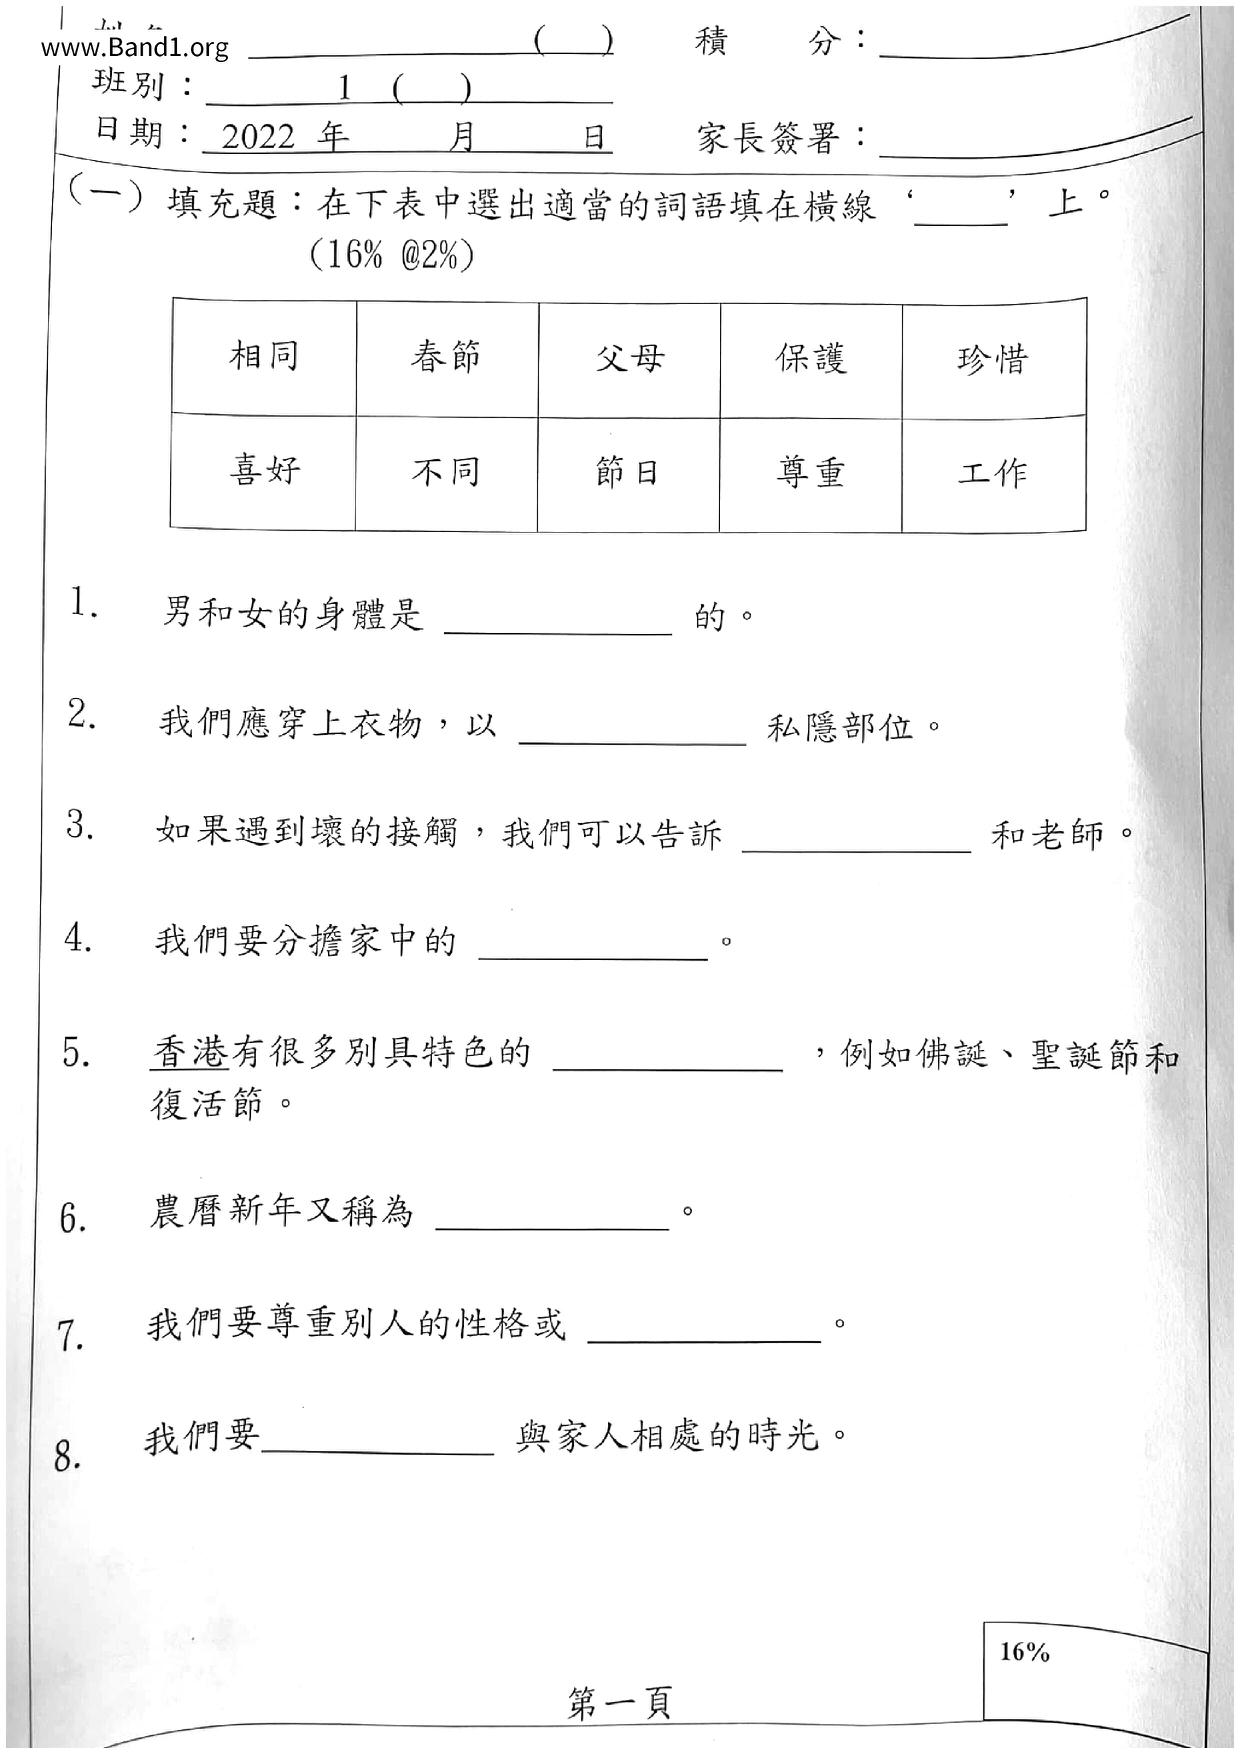 www.Band1.org
( ) 積 分：
班別： 1 ( )
日期： 2022 年 月 日 家長簽署：
(一) 填充題：在下表中選出適當的詞語填在橫線‘_____’上。
(16% @2%)
相同 春節 父母 保護 珍惜
喜好 不同 節日 尊重 工作
1. 男和女的身體是 __________ 的。
2. 我們應穿上衣物，以 __________ 私隱部位。
3. 如果遇到壞的接觸，我們可以告訴 __________ 和老師。
4. 我們要分擔家中的 __________。
5. 香港有很多別具特色的 __________ ，例如佛誕、聖誕節和
復活節。
6. 農曆新年又稱為 __________。
7. 我們要尊重別人的性格或 __________。
8. 我們要__________ 與家人相處的時光。
16%
第一頁